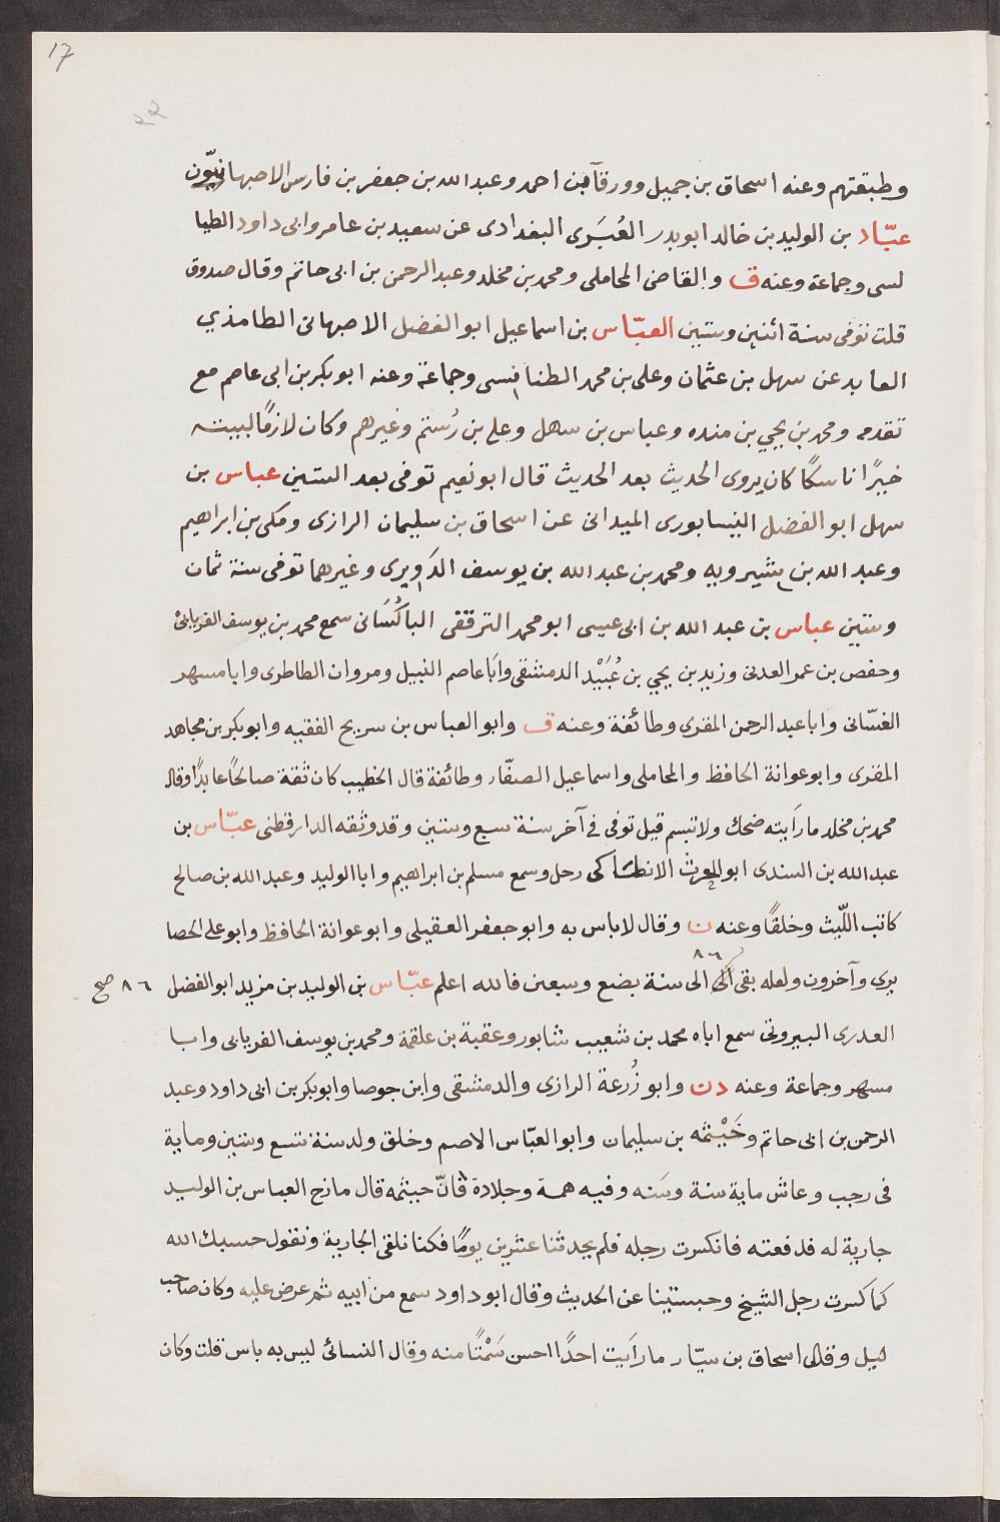 17
٢٢
وطبقتهم وعنه اسحاق بن جميل وورقآ بن احمد وعبد الله بن جعفر بن فارس الاصبهانيّون
عبّاد بن الوليد بن خالد ابو بدر الغُبَرَى البغدادى عن سعيد بن عامر وابى داود الطيا
لسى وجماعة وعنه ق والقاضى المحاملى ومحمد بن مخلد وعبد الرحمن بن ابى حاتم وقال صدوق
قلت توفى سنة اثنين وستين العبّاس بن اسماعيل ابو الفضل الاصبهانى الطامذي
العابد عن سهل بن عثمان وعلى بن محمد الطنافسى وجماعة وعنه ابو بكر بن ابى عاصم مع
تقدمه ومحمد بن يحيي بن منده وعباس بن سهل وعلى بن رُستم وغيرهم وكان لازمًا لبيته
خيرًا ناسكًا كان يروى الحديث بعد الحديث قال ابو نعيم توفى بعد الستين عباس بن
سهل ابو الفضل النيسابورى الميدانى عن اسحاق بن سليمان الرازى ومكى بن ابراهيم
وعبد الله بن شيرويه ومحمد بن عبد الله بن يوسف الدَويرى وغيرهما توفى سنة ثمان
وستين عباس بن عبد الله بن ابى عيسى ابو محمد الترقفى الباكُسَانى سمع محمد بن يوسف الفريابى
وحفص بن عمر العدنى وزيد بن يحيي بن عُبَيْد الدمشقى وابَا عاصم النبيل ومروان الطاطرى وابا مسهر
الغسّانى وابا عبد الرحمن المقرى وطائفة وعنه ق وابو العباس بن سريح الفقيه وابو بكر بن مجاهد
المقرى وابو عوانة الحافظ والمحاملى واسماعيل الصفّار وطائفة قال الخطيب كان ثقة صالحًا عابدًا وقال
محمد بن مخلد ما رَايته ضحك ولا تبسم قيل توفى في آخر سنة سبع وستين وقد وثقه الدارقطنى عبّاس بن
عبد الله بن السندى ابو الحرث الانطاكى رحل وسمع مسلم بن ابراهيم وابا الوليد وعبد الله بن صالح
كاتب اللّيث وخلقًا وعنه ن وقال لا باس به وابو جعفر العقيلى وابو عوانة الحافظ وابو على الحصا
يرى وآخرون ولعله بقى الى سنة بضع وسبعين فالله اعلم عبّاس بن الوليد بن مزيد ابو الفضل
٨٦
٨٦ صح
العدرى البيروتى سمع اباه محمد بن شعيب شابور وعقبة بن علقمة ومحمد بن يوسف الفريابى وابا
مسهر وجماعة وعنه د ن وابو زُرعة الرازى والدمشقى وابن جوصا وابو بكر بن ابى داود وعبد
الرحمن بن ابى حاتم وخَيْثمه بن سليمان وابو العبّاس الاصم وخلق ولد سنة تسع وستين وماية
فى رجب وعاش ماية سنة وسَنه وفيه همة وجلادة فانّ حيثمه قال مازح العباس بن الوليد
جارية له فدفعته فانكسرت رجله فلم يحدثنا عشرين يومًا فكنا نلقى الجارية ونقول حسبك الله
كما كسرت رجل الشيخ وحبستينا عن الحديث وقال ابو داود سمع من ابيه ثم عرض عليه وكان صاحب
ليل وقال اسحاق بن سيّار ما رايت احدًا احسن سَمْتًا منه وقال النسائى ليس به باس قلت وكان